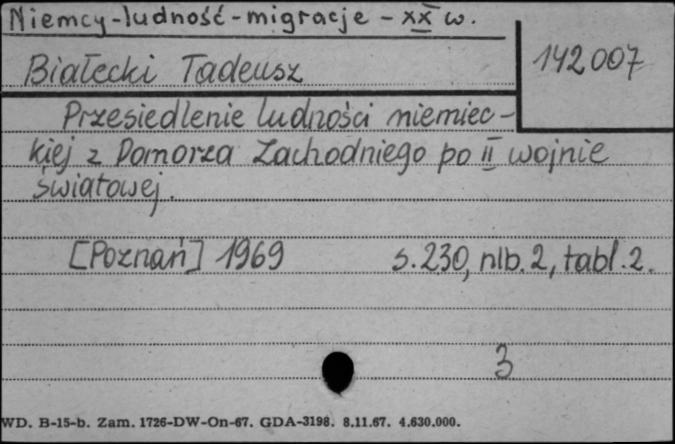 Niemcy-ludność-migracje - XX w.
Białecki Tadeusz
142007
Przesiedlenie ludności niemiec-
kiej z Pomorza Zachodniego po II wojnie
światowej.
[Poznań] 1969 s. 230, nlb. 2, tabl. 2.
3
WD. B-15-b. Zam. 1726-DW-On-67. GDA-3198. 8.11.67. 4.630.000.